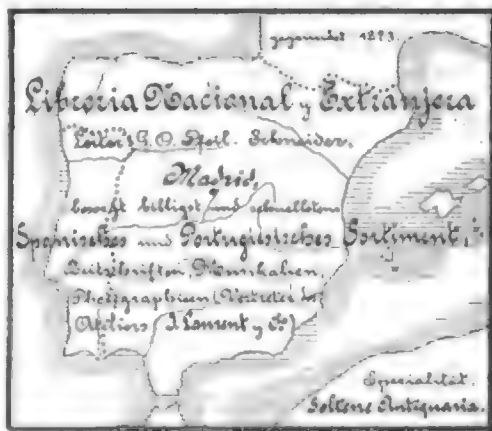 gegründet 1873.
Libreria Nacional y Extranjera
Leiter: G. O. Pfeil-Schneider.
Madrid,
besorgt billigst und schnellstens
Spanisches und Portugiesisches Sortiment,
Zeitschriften, Musikalien,
Photographien (Vertreter des
Ateliers J. Laurent y Co)
Spezialität.
Seltene Antiquaria.